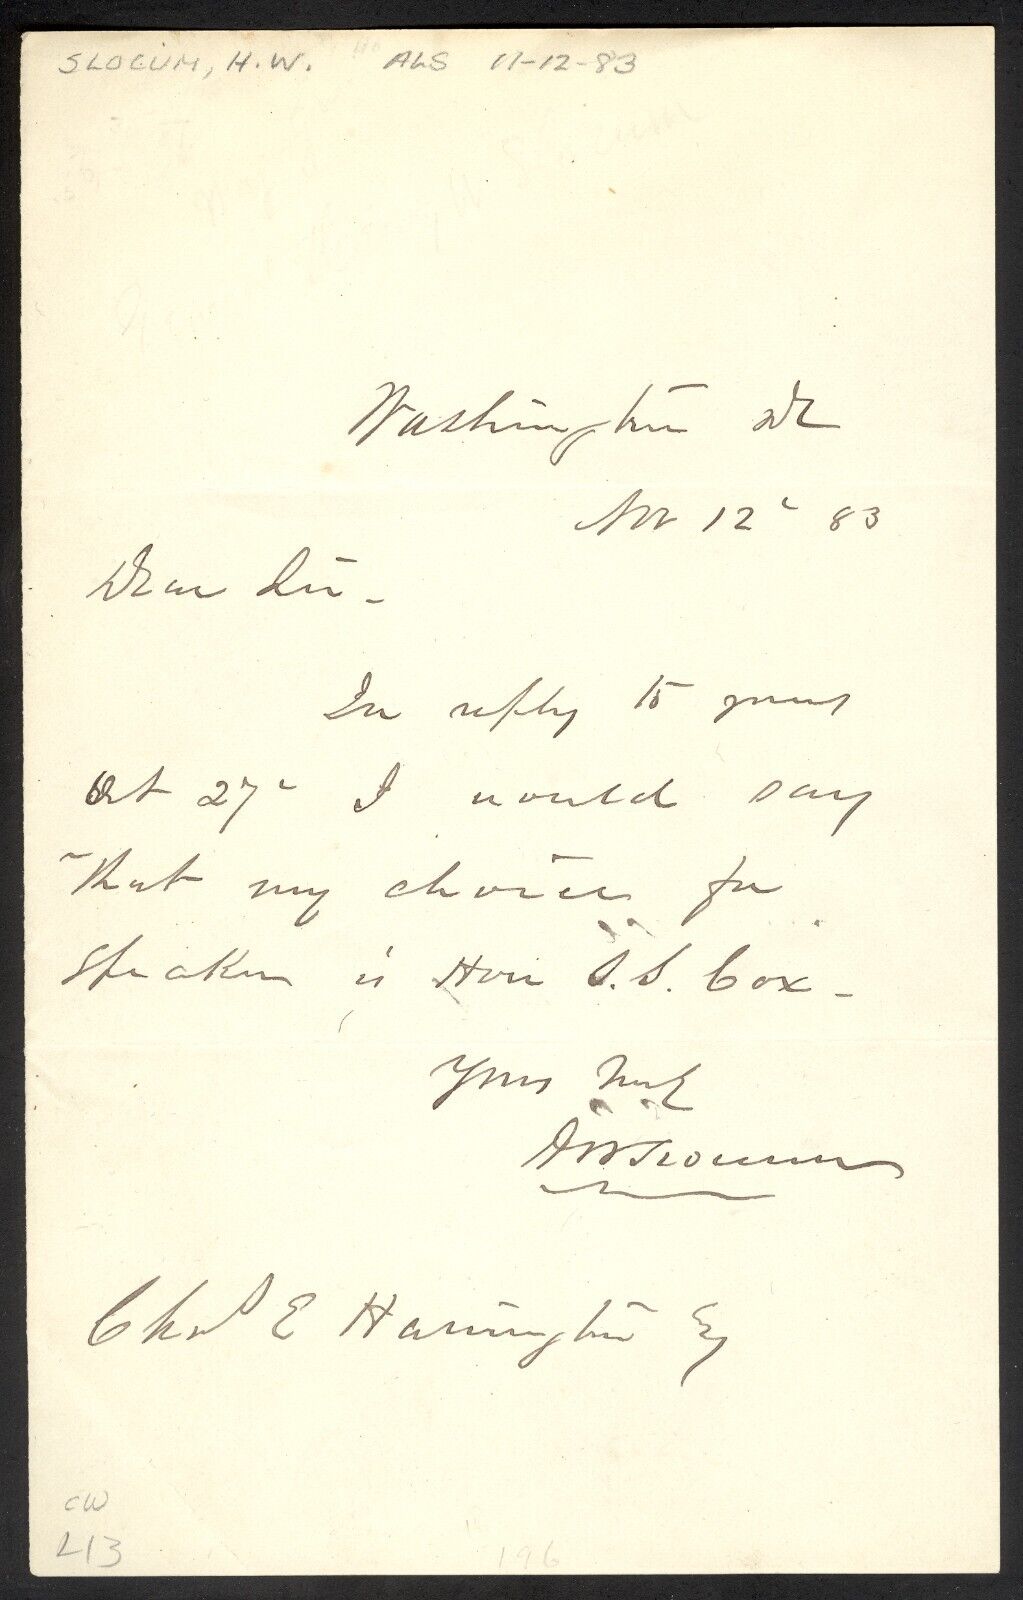 SLOCUM, H.W. ALS 11-12-83
Washington DC
Nov 12" 83
Dear Sir -
In reply to yours
Oct 27" I would say
that my choice for
speaker is Hon S.S. Cox -
Yours Truly
HW Slocum
Chas E Harrington Esq
CW
L13
196